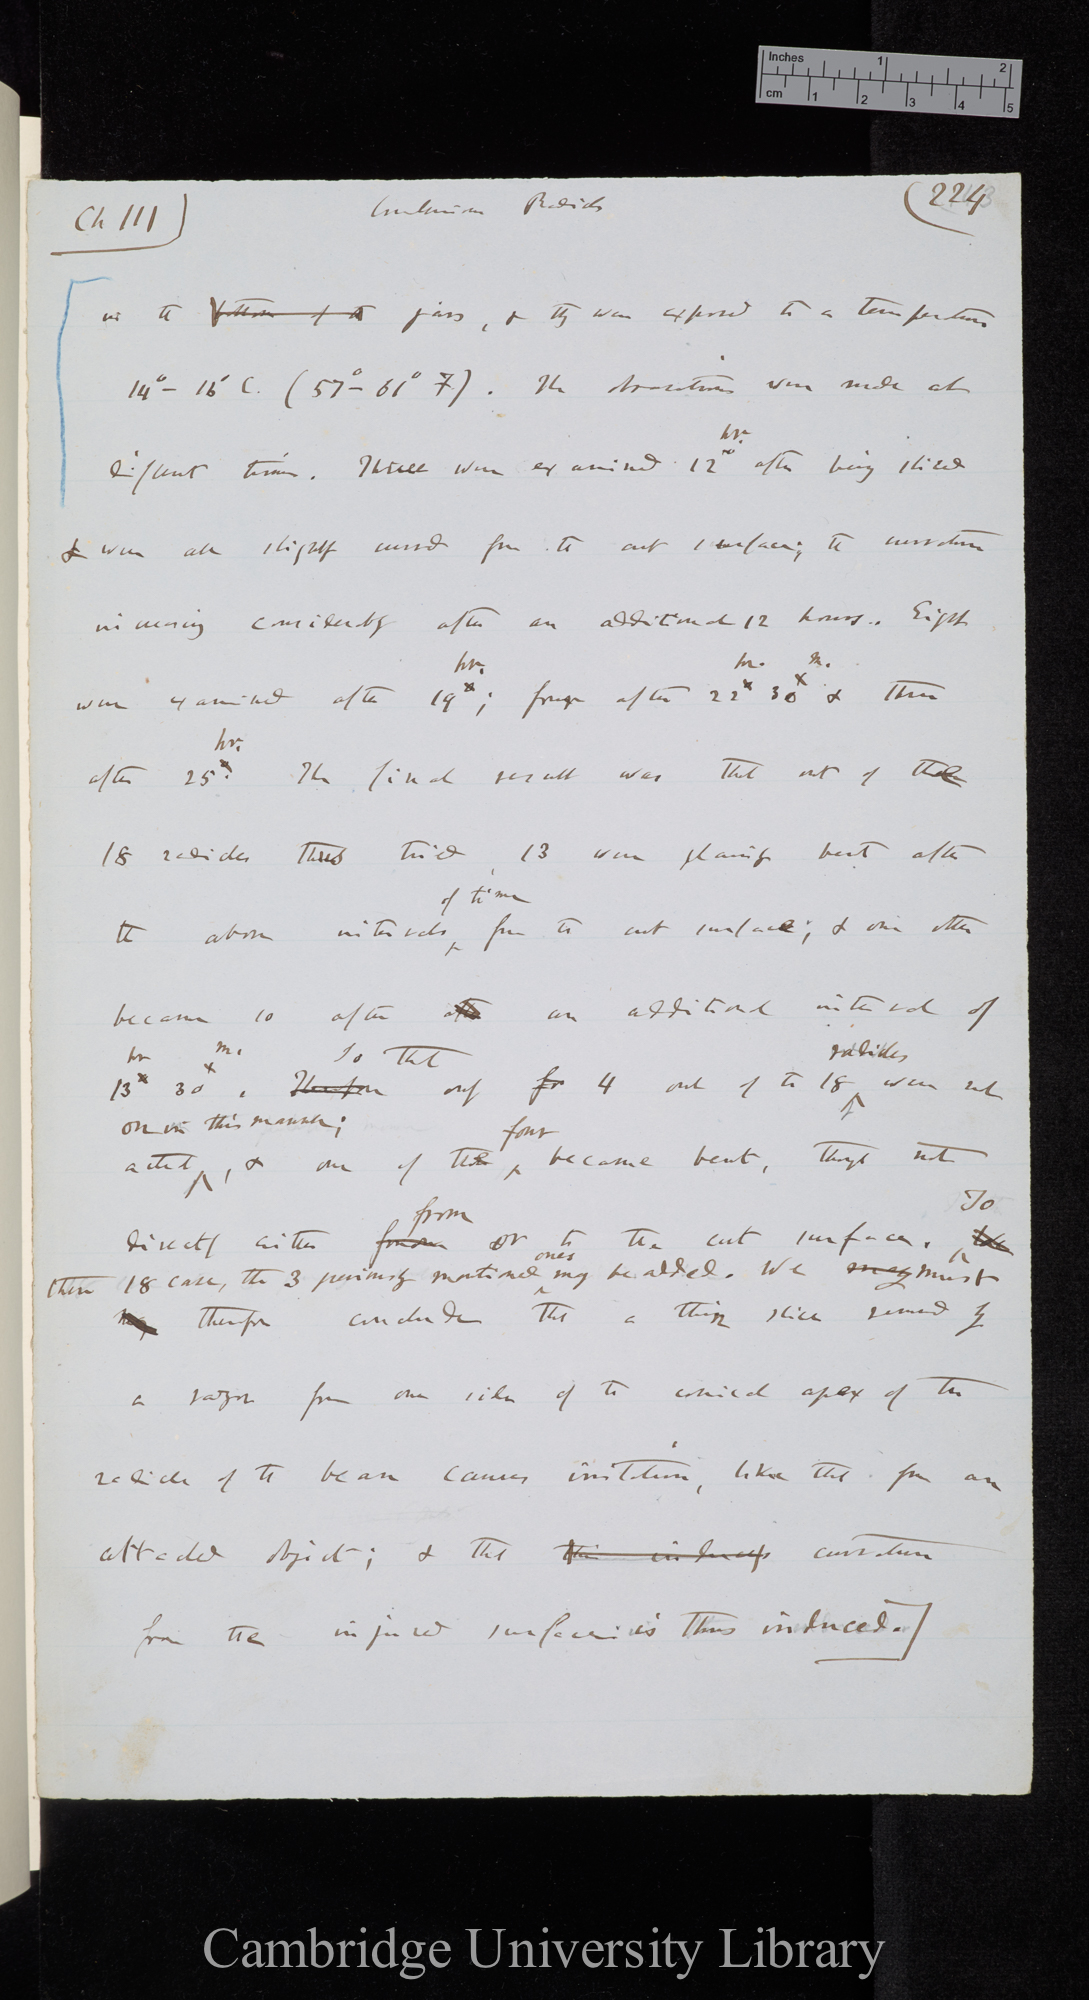 Inches 1 2
cm 1 2 3 4 5
Ch III
Radicle
224
in the bottom of the jars, & they were exposed to a temperature
14°– 16° C. (57°– 61° F). The observations were made at
different times. Three were examined 12 hr. after being sliced
& were all slightly curved from the cut surfaces, the curvature
increasing considerably after an additional 12 hours. Eight
hr. hr. m.
were examined after 19; four after 22 30 & three
hr.
after 25. The final result was that out of the
18 radicles thus tried, 13 were plainly bent after
of time
the above intervals from the cut surface; & one other
became so after after an additional interval of
hr m. So that radicles
13 30. Therefore only for 4 out of the 18 were not
on in this manner;
acted, & one of these four became bent, though not
from To
directly either from or to the cut surface. the
ones
these 18 cases, the 3 previously mentioned may be added. We may must
may therefore conclude that a thin slice removed by
a razor from one side of the conical apex of the
radicle of the bean causes irritation, like that from an
attached object; & that this induces curvature
from the injured surface is thus induced.
Cambridge University Library